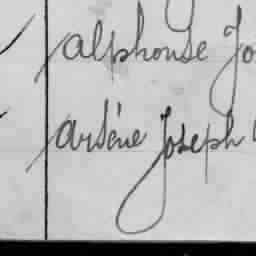 Alphonse Jo
Arsène Joseph